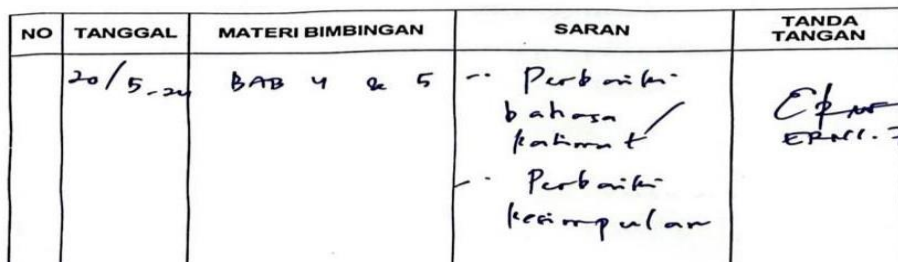 NO TANGGAL MATERI BIMBINGAN SARAN TANDA TANGAN
20/5-24 BAB 4 & 5 - Perbaiki
bahasa /
kalimat
- Perbaiki
kesimpulan
ERNI.